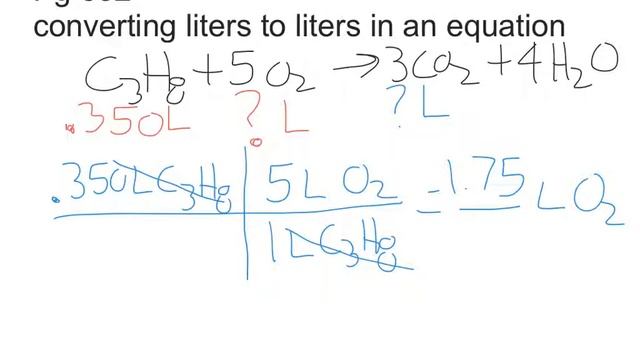 converting liters to liters in an equation
C3H8 + 5O2 → 3CO2 + 4H2O
.350L ? L ? L
.350L C3H8 5L O2 = 1.75 L O2
1L C3H8